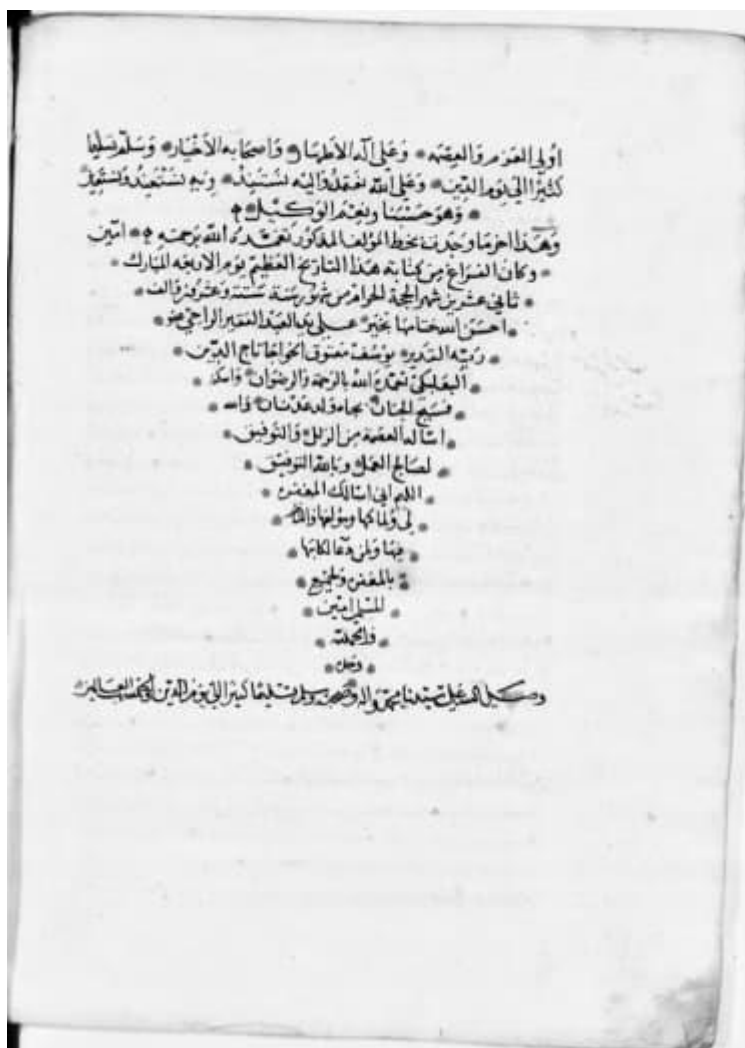 اولي العزم والعصمه * وعلى آله الأطهار * واصحابه الأخيار * وسلم تسليما
كثيرا الى يوم الدين * وعلى الله نعتمد واليه نستنيد * وبه نستعيذ ونستعين
* وهو حسبنا ونعم الوكيل *
وهذا اخر ما وجدت بخط المؤلف المذكور تغمده الله برحمته * امين
* وكان الفراغ من كتابة هذا التاريخ العظيم يوم الاربعه المبارك *
* ثاني عشرين شهر الحجة الحرام من شهور سنة ستة وعشرون والف *
* احسن الله ختامها بخير على يد العبد الفقير الراجي عفو *
* ربه القدير * يوسف معتوق الخواجا تاج الدين *
* البعلبكي تغمده الله بالرحمة والرضوان * واسكنه *
* فسيح الجنان * بجاه ولد عدنان * والله *
* اسأله العصمة من الزلل * والتوفيق *
* لصالح العمل وبالله التوفيق *
* اللهم اني اسالك المغفرة *
* لي ولمالكها ومؤلفها *
* فيها ولمن دعا لكاتبها *
* بالمغفرة ولجميع *
* المسلمين امين *
* والحمد لله *
* وحده *
وصلى الله على سيدنا محمد واله وصحبه وسلم تسليما كثيرا الى يوم الدين